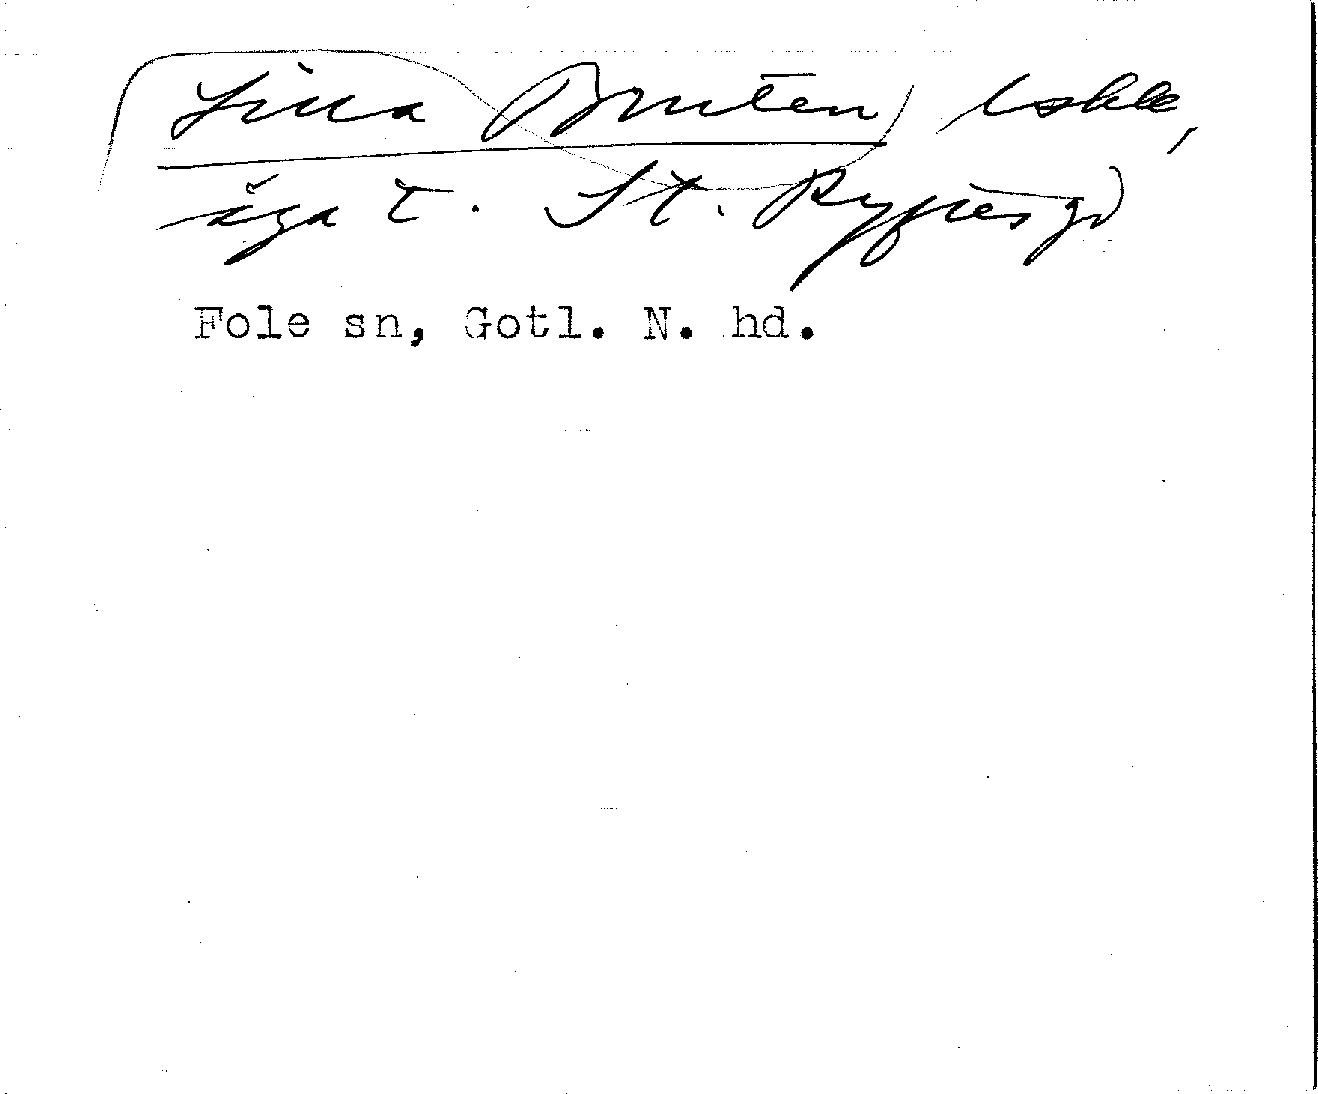 Lilla Bruten, lokk,
äga t. St. Ryftes gd
Fole sn, Gotl. N. hd.